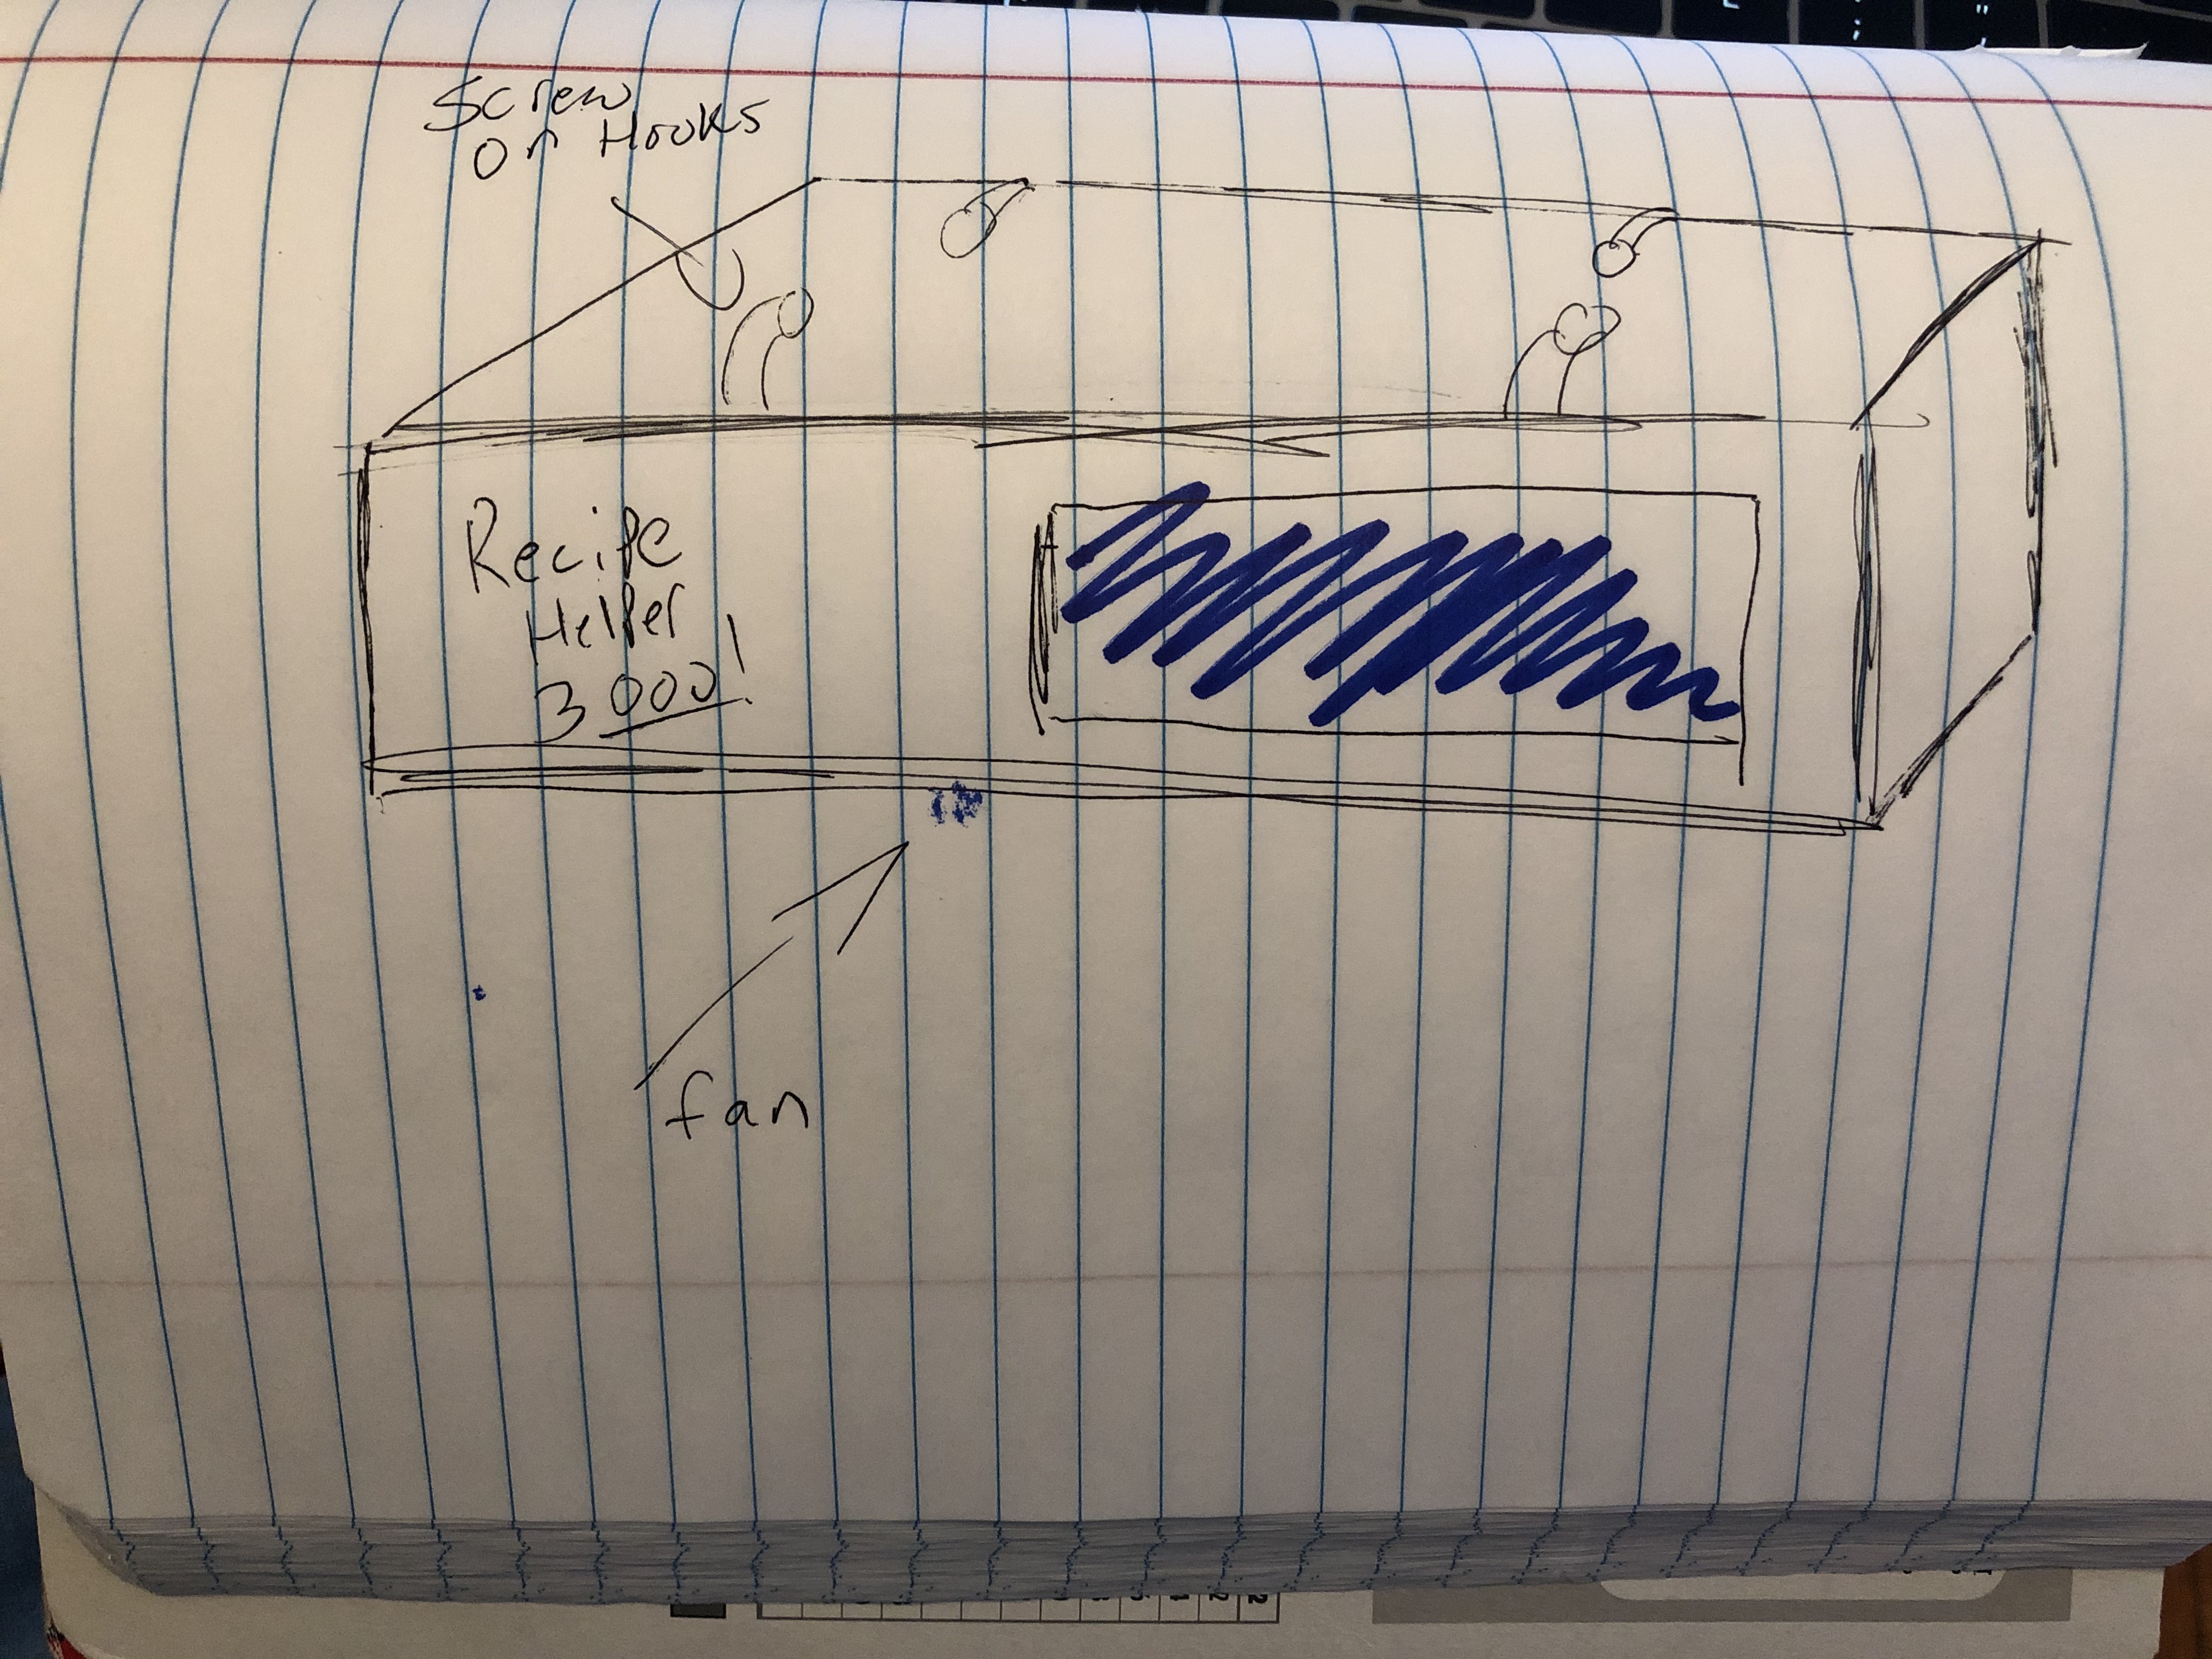 Screw
on Hooks
Recipe
Helper
3000!
fan